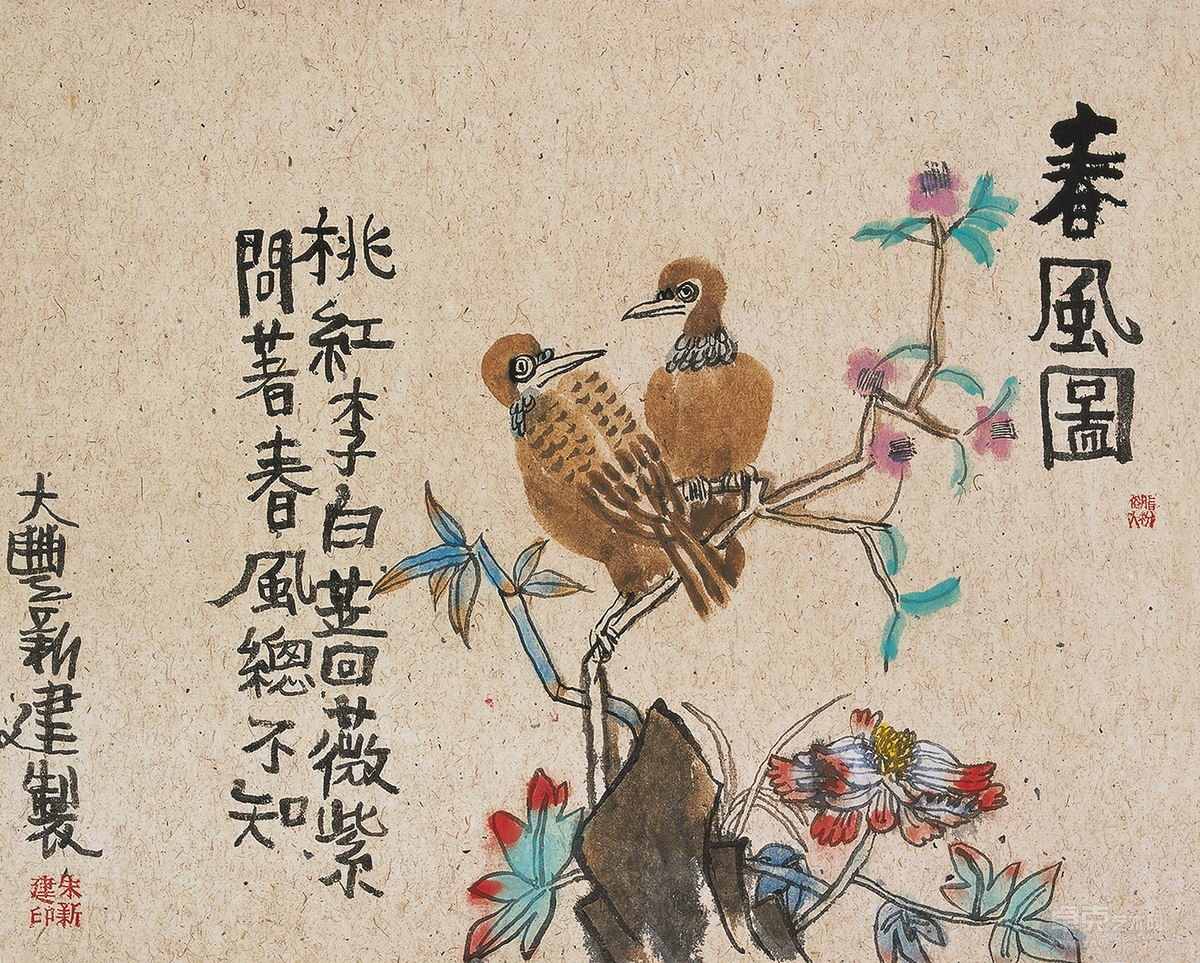 春風圖
脂粉俗人
桃紅李白蔷薇紫
問著春風總不知
大豐新建製
朱新建印